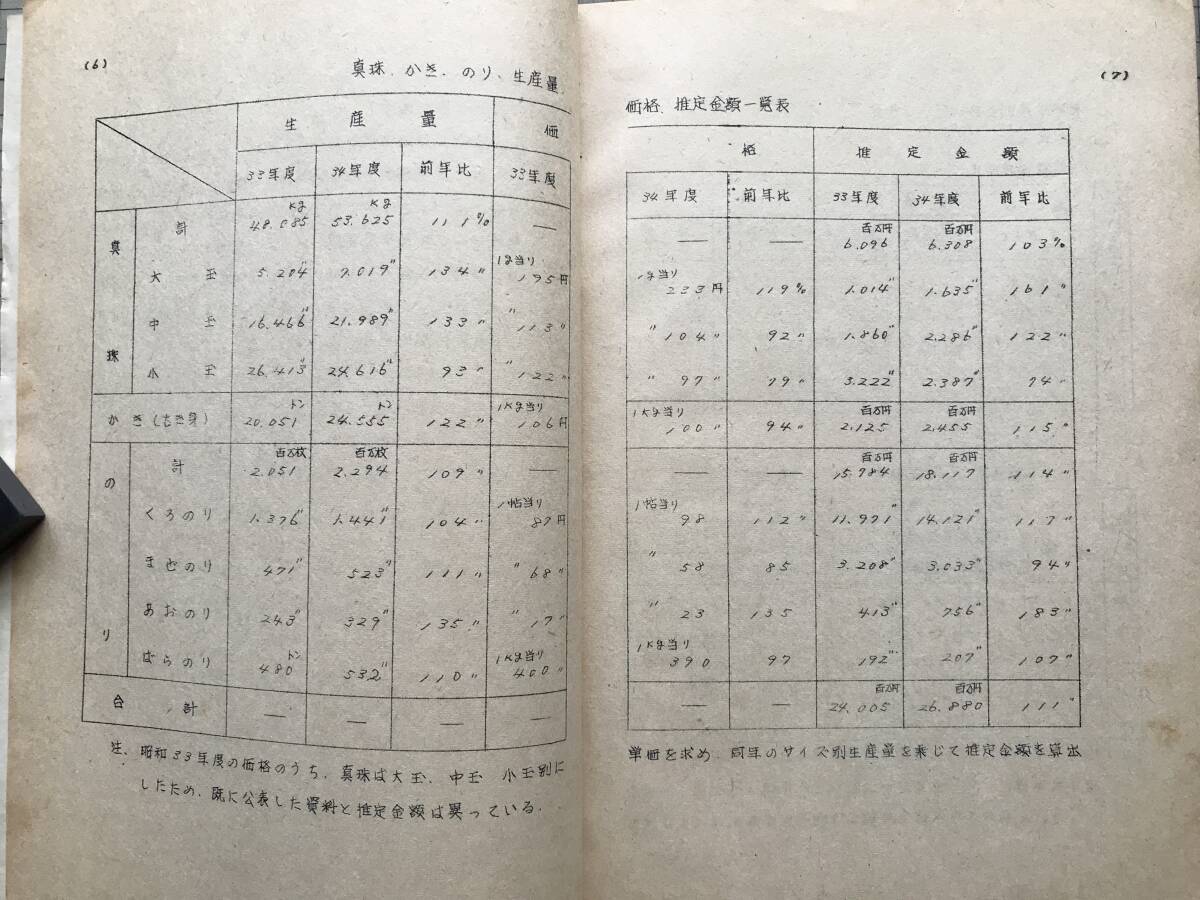 (6)
真珠、かき、のり、生産量
生 産 量 価
33年度 34年度 前年比 33年度
真珠
計 48.085kg 53.625kg 111% —
大 玉 5.204〃 7.019〃 134〃 1g当り 195円
中 玉 16.466〃 21.989〃 133〃 〃113〃
小 玉 26.413〃 24.616〃 93〃 〃122〃
かき(むき身) 20.051トン 24.555トン 122〃 1kg当り 106円
のり
計 2.051百万枚 2.294百万枚 109〃 —
くろのり 1.376〃 1.441〃 104〃 1帖当り 87円
まぜのり 471〃 523〃 111〃 〃68〃
あおのり 243〃 329〃 135〃 〃17〃
ばらのり 480トン 532〃 110〃 1kg当り 400〃
合 計 — — — —
注、昭和33年度の価格のうち、真珠は大玉、中玉 小玉別に
したため、既に公表した資料と推定金額は異っている。
(7)
価格、推定金額一覧表
格 推 定 金 額
34年度 前年比 33年度 34年度 前年比
— — 6.096百万円 6.308百万円 103%
1g当り 233円 119% 1.014〃 1.635〃 161〃
〃104〃 92〃 1.860〃 2.286〃 122〃
〃97〃 79〃 3.222〃 2.387〃 74〃
1kg当り 100〃 94〃 2.125百万円 2.455百万円 115〃
— — 15.784百万円 18.117百万円 114〃
1帖当り 98 112〃 11.971〃 14.121〃 117〃
〃58 85 3.208〃 3.033〃 94〃
〃23 135 413〃 756〃 183〃
1kg当り 390 97 192〃 207〃 107〃
— — 24.005百万円 26.880百万円 111〃
単価を求め、同年のサイズ別生産量を乗じて推定金額を算出